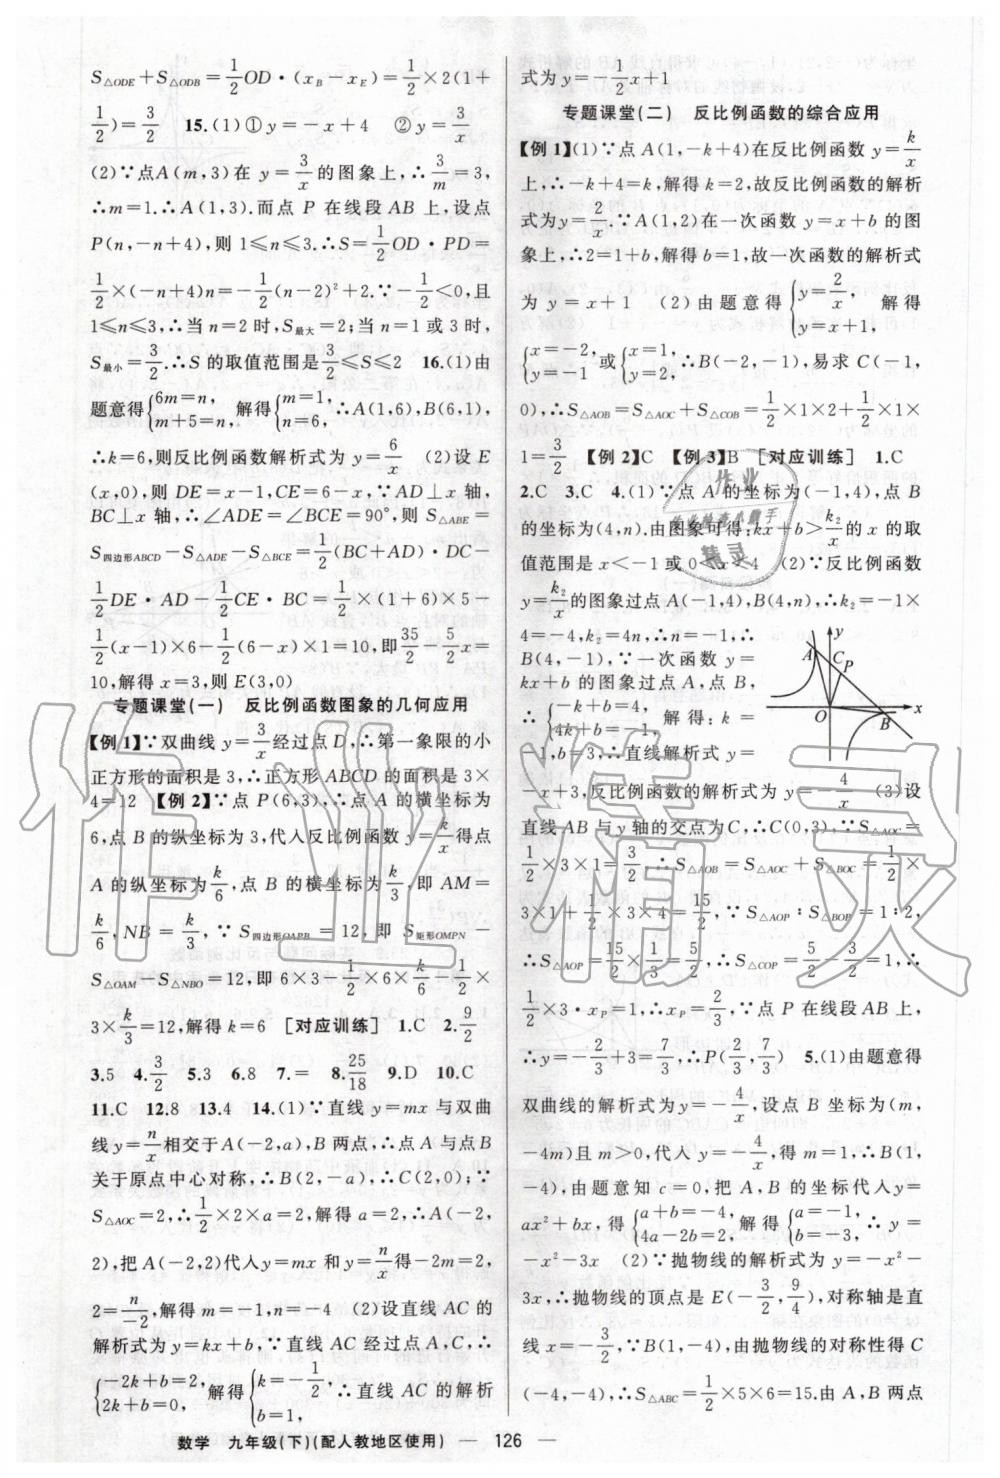 S△ODE+S△ODB=1/2OD·(xB-xE)=1/2×2(1+
1/2)=3/2 15.(1)①y=-x+4 ②y=3/x
(2)∵点A(m,3)在y=3/x的图象上,∴3/m=3,
∴m=1.∴A(1,3).而点P在线段AB上,设点
P(n,-n+4),则1≤n≤3.∴S=1/2OD·PD=
1/2×(-n+4)n=-1/2(n-2)²+2.∵-1/2<0,且
1≤n≤3,∴当n=2时,S最大=2;当n=1或3时,
S最小=3/2.∴S的取值范围是3/2≤S≤2 16.(1)由
题意得{6m=n, m+5=n, 解得{m=1, n=6, ∴A(1,6),B(6,1),
∴k=6,则反比例函数解析式为y=6/x (2)设E
(x,0),则DE=x-1,CE=6-x,∵AD⊥x轴,
BC⊥x轴,∴∠ADE=∠BCE=90°,则S△ABE=
S四边形ABCD-S△ADE-S△BCE=1/2(BC+AD)·DC-
1/2DE·AD-1/2CE·BC=1/2×(1+6)×5-
1/2(x-1)×6-1/2(6-x)×1=10,即35/2-5/2x=
10,解得x=3,则E(3,0)
专题课堂(一) 反比例函数图象的几何应用
【例1】∵双曲线y=3/x经过点D,∴第一象限的小
正方形的面积是3,∴正方形ABCD的面积是3×
4=12 【例2】∵点P(6,3),∴点A的横坐标为
6,点B的纵坐标为3,代入反比例函数y=k/x得点
A的纵坐标为k/6,点B的横坐标为k/3,即AM=
k/6,NB=k/3,∵S四边形OAPB=12,即S矩形OMPN-
S△OAM-S△NBO=12,即6×3-1/2×6×k/6-1/2×
3×k/3=12,解得k=6 [对应训练] 1.C 2.9/2
3.5 4.3/2 5.3 6.8 7.= 8.25/18 9.D 10.C
11.C 12.8 13.4 14.(1)∵直线y=mx与双曲
线y=n/x相交于A(-2,a),B两点,∴点A与点B
关于原点中心对称,∴B(2,-a),∴C(2,0);∵
S△AOC=2,∴1/2×2×a=2,解得a=2,∴A(-2,
2),把A(-2,2)代入y=mx和y=n/x得-2m=2,
2=n/-2,解得m=-1,n=-4 (2)设直线AC的
解析式为y=kx+b,∵直线AC经过点A,C,∴
{-2k+b=2, 2k+b=0, 解得{k=-1/2, b=1, ∴直线AC的解析
式为y=-1/2x+1
专题课堂(二) 反比例函数的综合应用
【例1】(1)∵点A(1,-k+4)在反比例函数y=k/x
上,∴-k+4=k,解得k=2,故反比例函数的解析
式为y=2/x.∵A(1,2)在一次函数y=x+b的图
象上,∴2=1+b,解得b=1,故一次函数的解析式
为y=x+1 (2)由题意得{y=2/x, y=x+1, 解得
{x=-2, y=-1 或{x=1, y=2, ∴B(-2,-1),易求C(-1,
0),∴S△AOB=S△AOC+S△COB=1/2×1×2+1/2×1×
1=3/2 【例2】C 【例3】B [对应训练] 1.C
2.C 3.C 4.(1)∵点A的坐标为(-1,4),点B
的坐标为(4,n).由图象可得:kx+b>k₂/x的x的取
值范围是x<-1或0<x<4 (2)∵反比例函数
y=k₂/x的图象过点A(-1,4),B(4,n),∴k₂=-1×
4=-4,k₂=4n,∴n=-1,∴
B(4,-1),∵一次函数y=
kx+b的图象过点A,点B,
∴{-k+b=4, 4k+b=-1, 解得:k=
-1,b=3,∴直线解析式y=
-x+3,反比例函数的解析式为y=-4/x (3)设
直线AB与y轴的交点为C,∴C(0,3),∵S△AOC=
1/2×3×1=3/2,∴S△AOB=S△AOC+S△BOC=1/2×
3×1+1/2×3×4=15/2,∵S△AOP:S△BOP=1:2,
∴S△AOP=15/2×1/3=5/2,∴S△COP=5/2-3/2=1,∴
1/2×3·xP=1,∴xP=2/3,∵点P在线段AB上,
∴y=-2/3+3=7/3,∴P(2/3,7/3) 5.(1)由题意得
双曲线的解析式为y=-4/x,设点B坐标为(m,
-4m)且m>0,代入y=-4/x,得m=1,∴B(1,
-4),由题意知c=0,把A,B的坐标代入y=
ax²+bx,得{a+b=-4, 4a-2b=2, 解得{a=-1, b=-3, ∴y=
-x²-3x (2)∵抛物线的解析式为y=-x²-
3x,∴抛物线的顶点是E(-3/2,9/4),对称轴是直
线x=-3/2,∵B(1,-4),由抛物线的对称性得C
(-4,-4),∴S△ABC=1/2×5×6=15.由A,B两点
y
A
C
P
O
x
B
作业
精灵
数学 九年级(下)(配人教地区使用) — 126 —
作业精灵